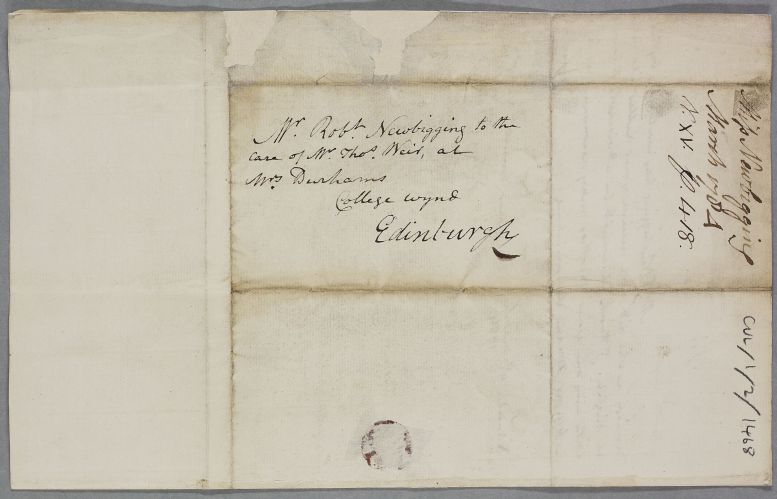 Mr. Robt. Newbigging to the
care of Mr. Thos. Weir, at
Mrs Durhams
College wynd
Edinburgh
Newbigging
March 1784
V. XV. f. 418.
CUL/1/2/1468